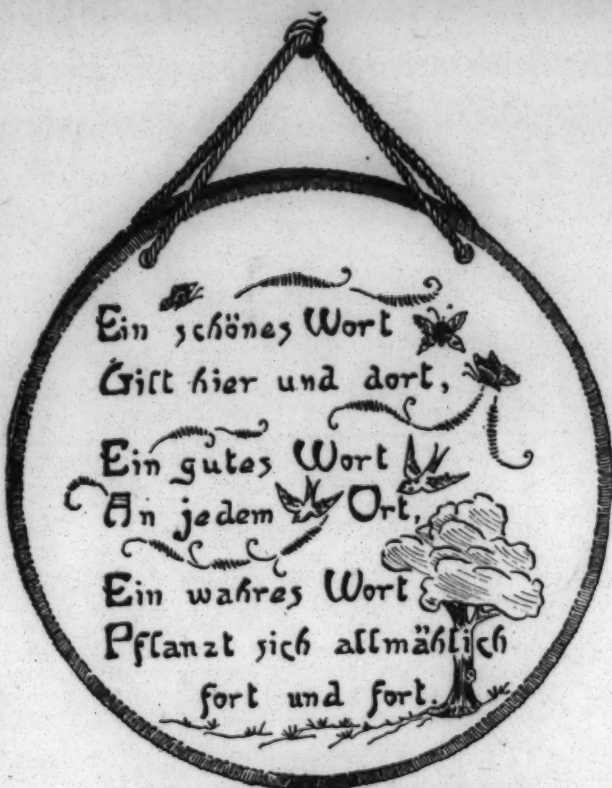 Ein schönes Wort
Gilt hier und dort,
Ein gutes Wort
An jedem Ort,
Ein wahres Wort
Pflanzt sich allmählich
fort und fort.